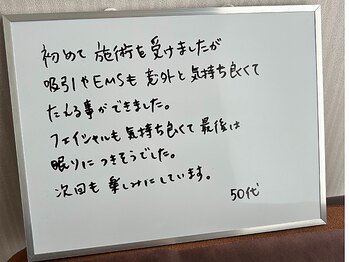 初めて 施術を受けましたが
吸引やEMSも意外と気持ち良くて
たえる事ができました。
フェイシャルも気持ち良くて最後は
眠りにつきそうでした。
次回も楽しみにしています。
50代